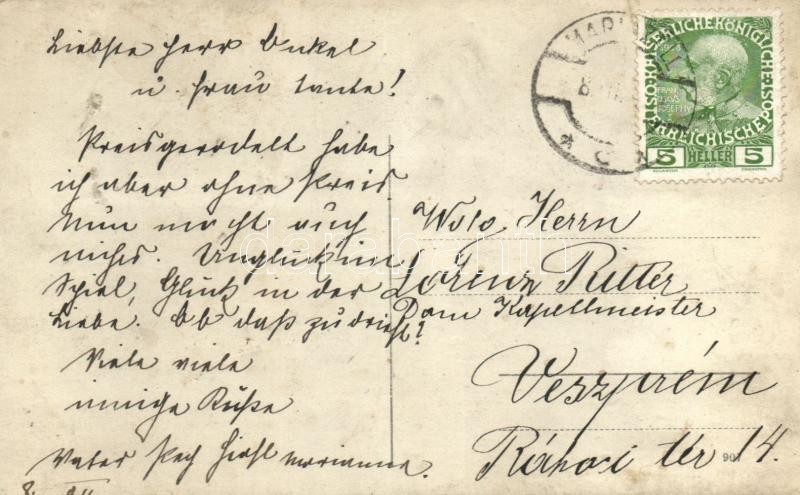 Liebste Herr Onkel
u. Frau Tante!
Preisgerodelt habe
ich aber ohne Preis.
Nun macht auch
nichs. Unglück im
Spiel, Glück in der
Liebe. Ob daß zudrieft?
Viele viele
innige Küße
Vater
Marianne.
8.
KAISERLICHE KÖNIGLICHE ÖSTERREICHISCHE POST
5 HELLER 5
Wolg. Herrn
Lorenz Ritter
Dom Kapellmeister
Veszprém
Rákoci tér 14.